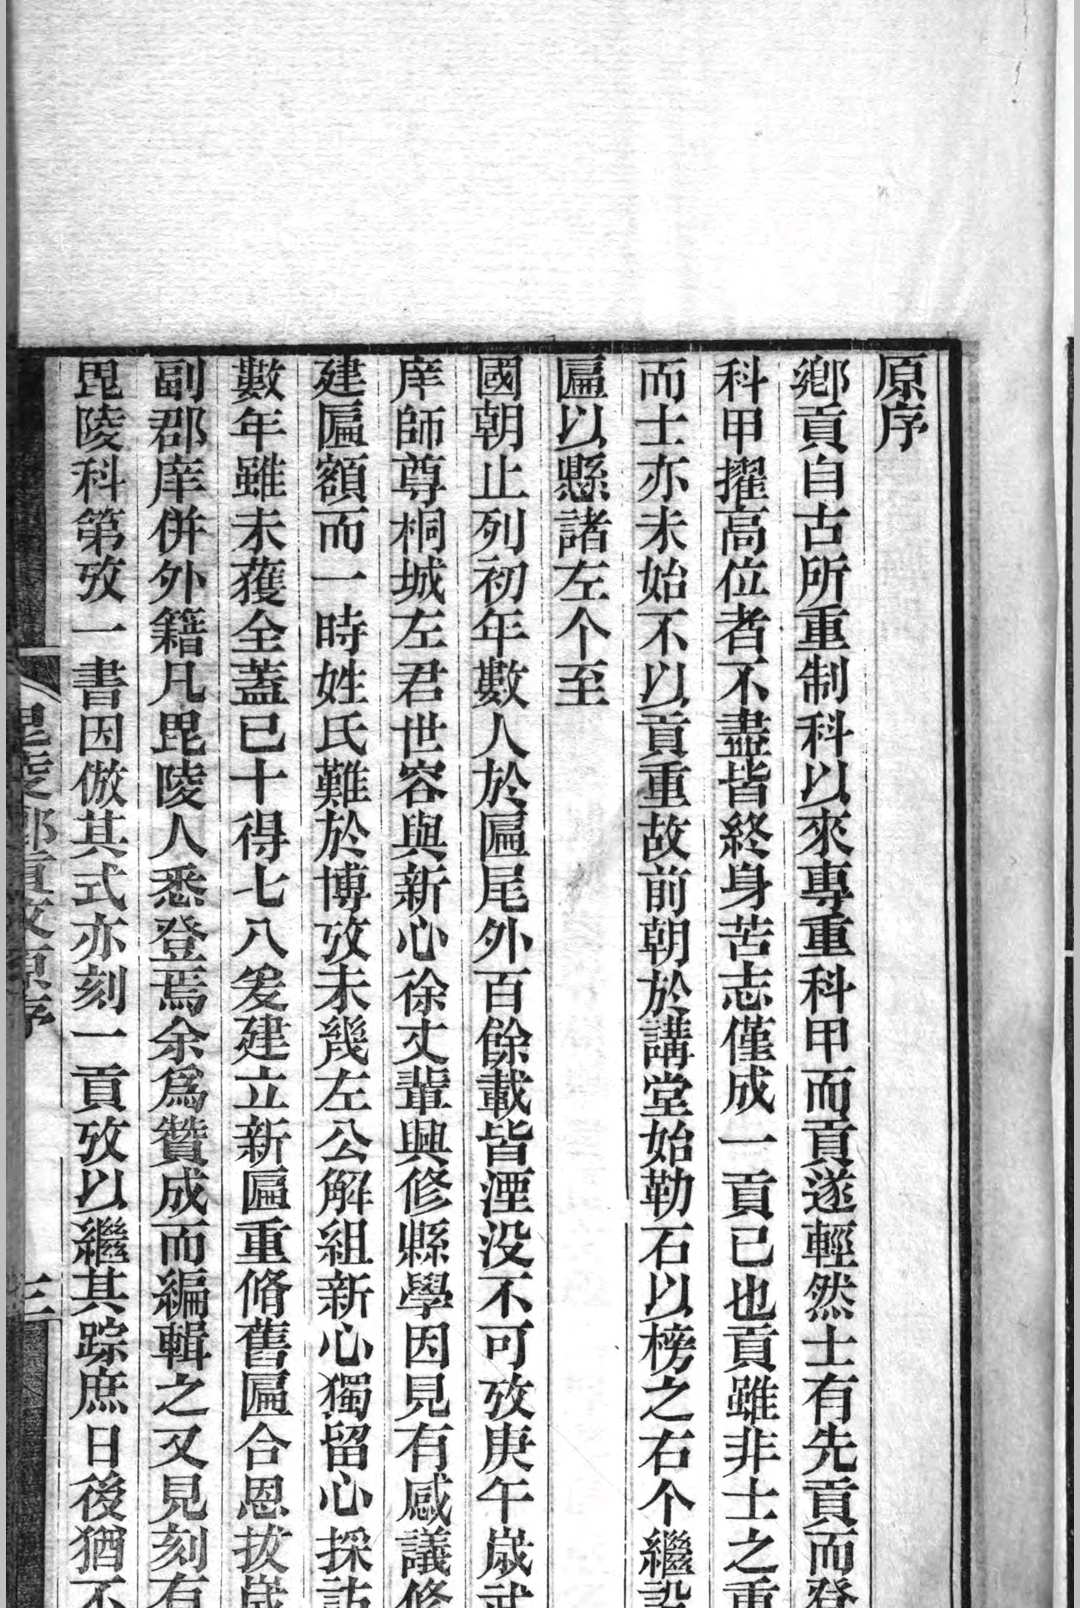 原序
鄉貢自古所重制科以來專重科甲而貢遂輕然士有先貢而登
科甲擢高位者不盡皆終身苦志僅成一貢已也貢雖非士之重
而士亦未始不以貢重故前朝於講堂始勒石以榜之右个繼設
匾以縣諸左个至
國朝止列初年數人於匾尾外百餘載皆湮没不可攷庚午嵗武
庠師尊桐城左君世容與新心徐丈輩興修縣學因見有感議修
建匾額而一時姓氏難於博攷未幾左公解組新心獨留心採訪
數年雖未獲全蓋已十得七八爰建立新匾重脩舊匾合恩拔嵗
副郡庠併外籍凡毘陵人悉登焉余爲贊成而編輯之又見刻有
毘陵科第攷一書因倣其式亦刻一貢攷以繼其踪庶日後猶不
毘陵鄉貢攷原序
三